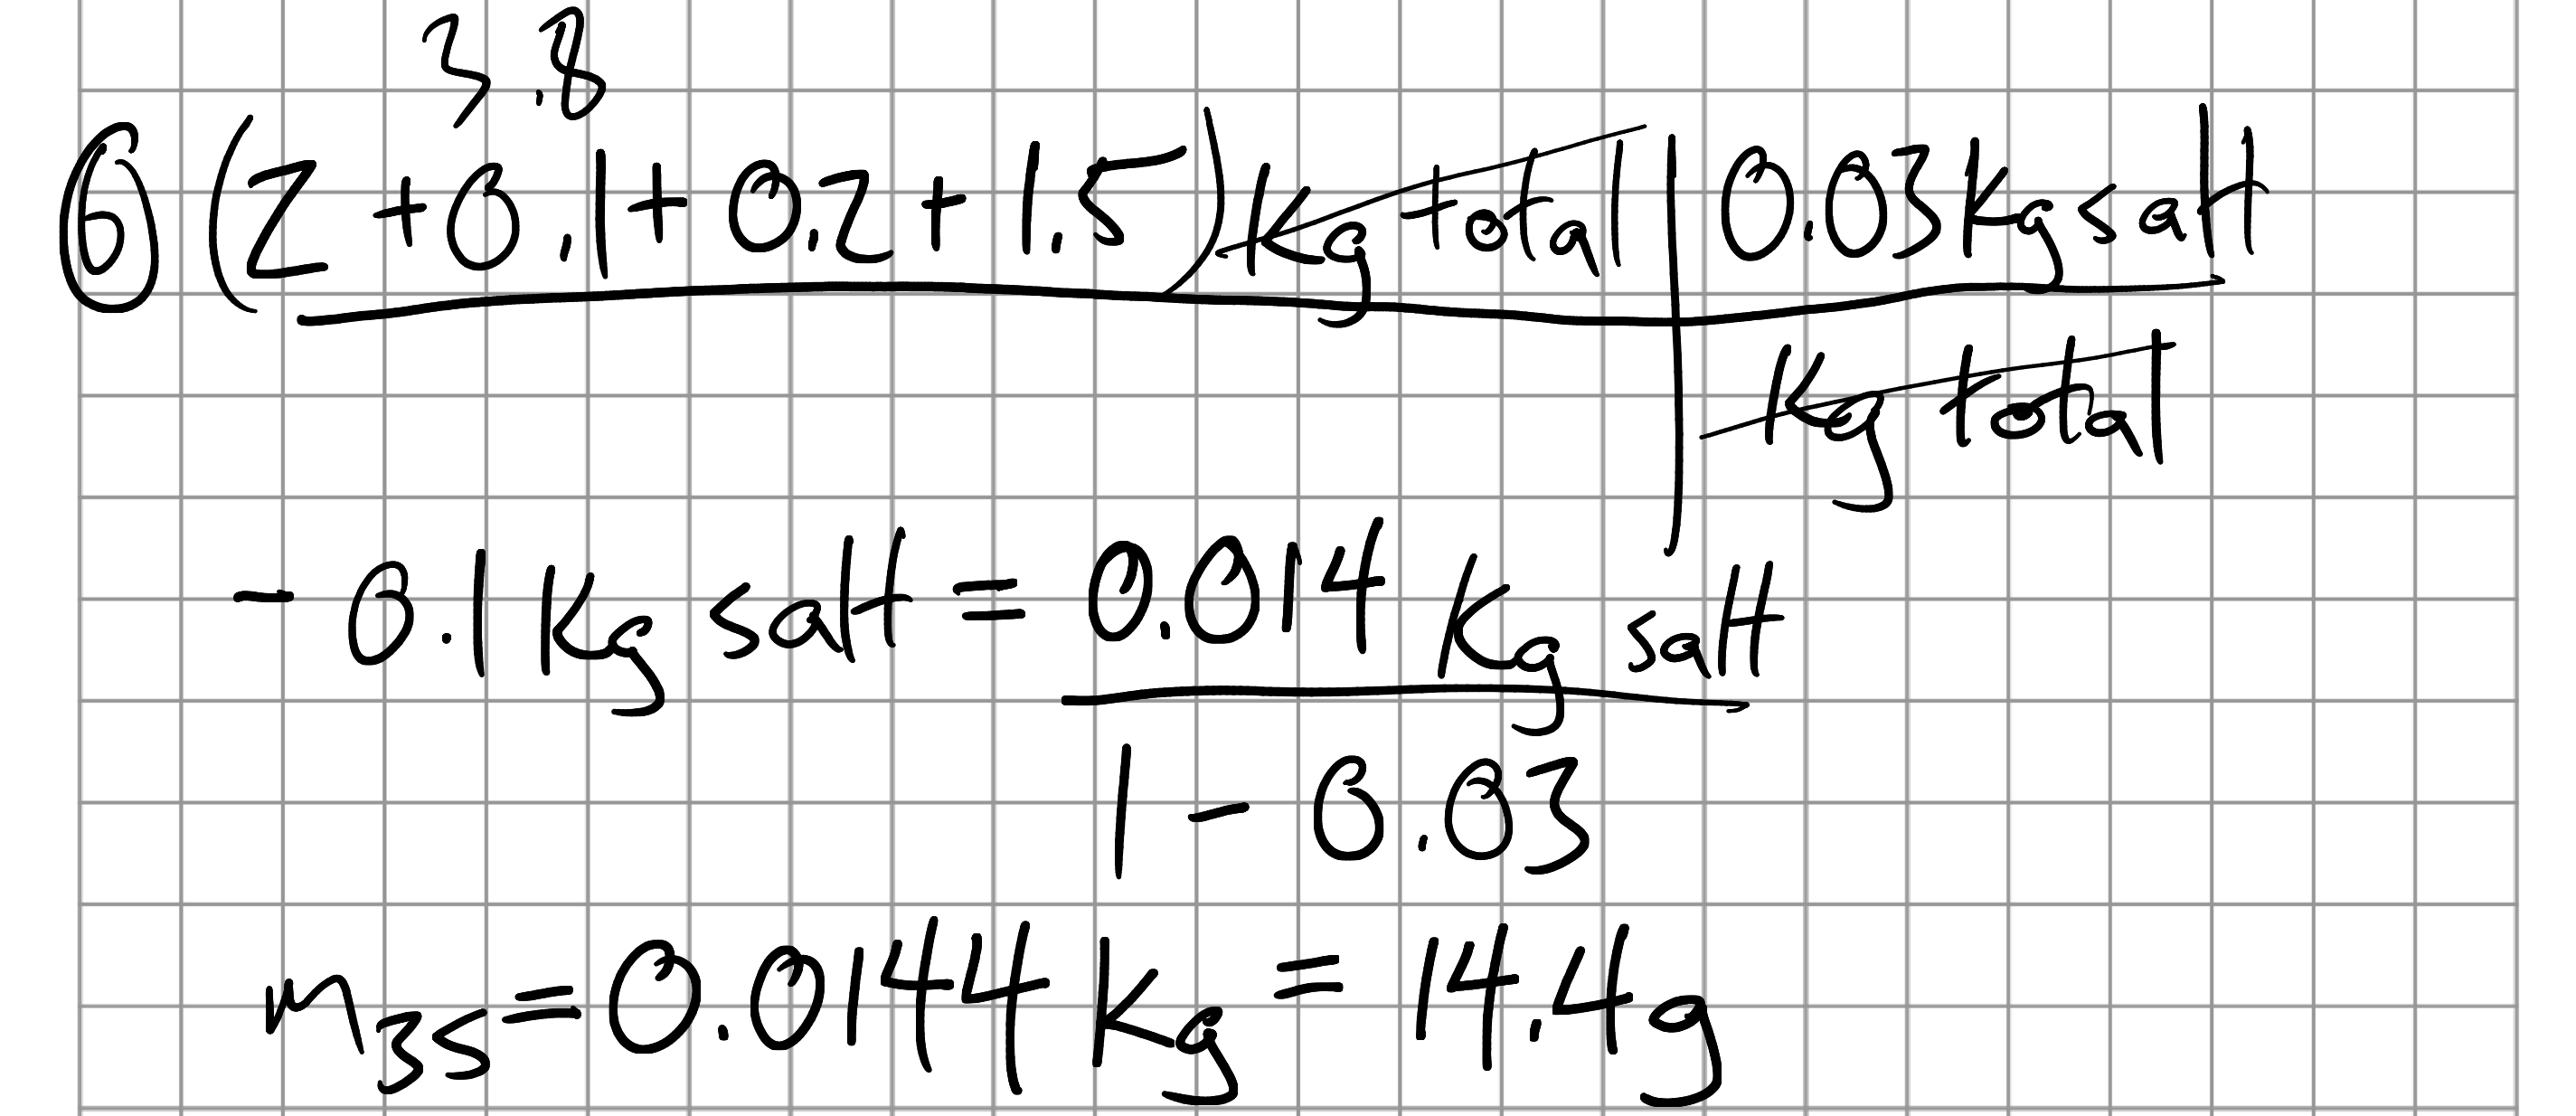 3.8
⑥ (2 + 0.1 + 0.2 + 1.5) kg total | 0.03 kg salt
kg total
- 0.1 kg salt = 0.014 kg salt
1 - 0.03
m3S = 0.0144 kg = 14.4g